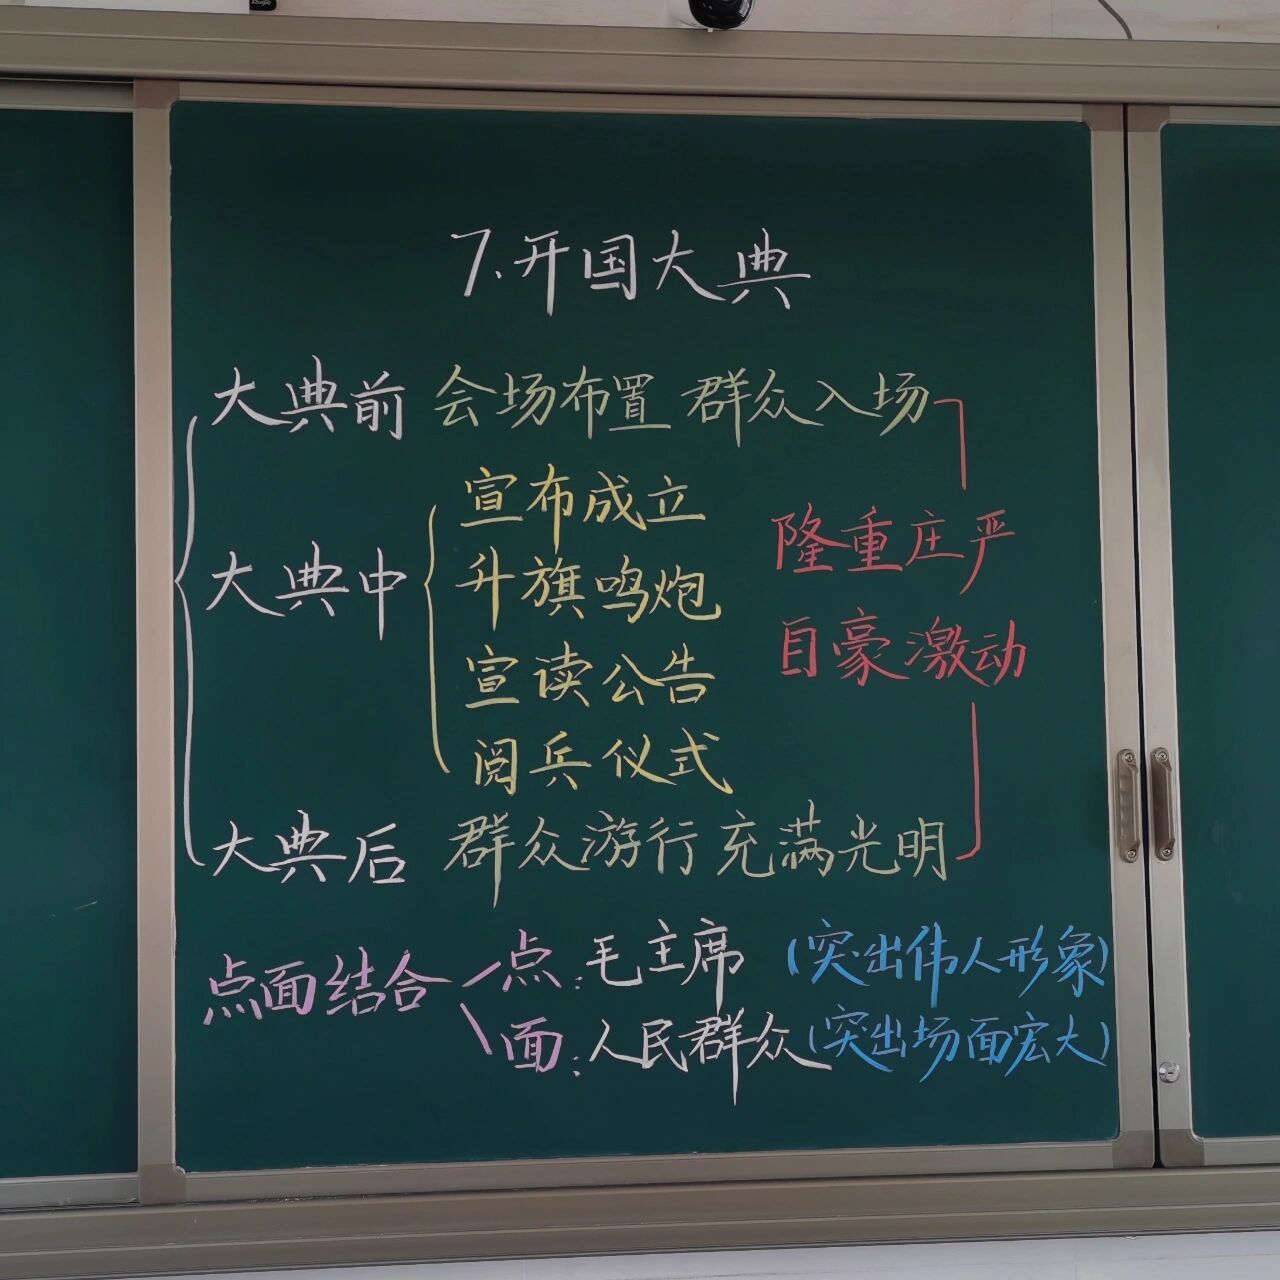 7.开国大典
大典前 会场布置 群众入场
宣布成立
隆重庄严
大典中
升旗鸣炮
自豪激动
宣读公告
阅兵仪式
大典后 群众游行 充满光明
点面结合 点:毛主席 (突出伟人形象)
面:人民群众(突出场面宏大)